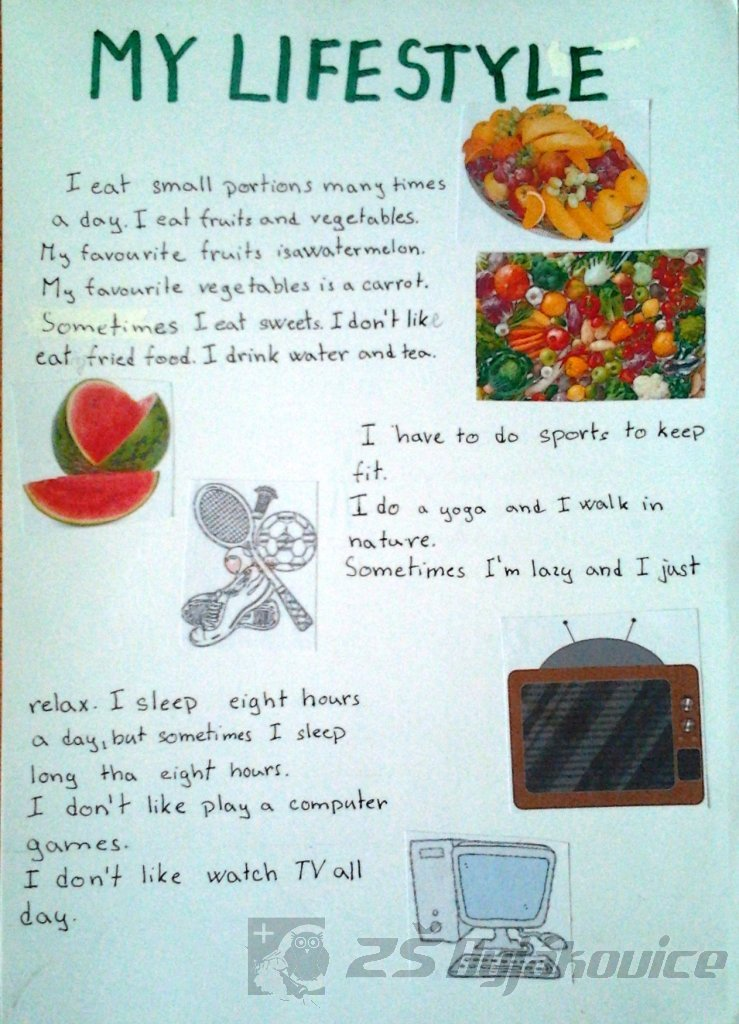 MY LIFESTYLE
I eat small portions many times
a day. I eat fruits and vegetables.
My favourite fruits isawatermelon.
My favourite vegetables is a carrot.
Sometimes I eat sweets. I don't like
eat fried food. I drink water and tea.
I have to do sports to keep
fit.
I do a yoga and I walk in
nature.
Sometimes I'm lazy and I just
relax. I sleep eight hours
a day, but sometimes I sleep
long tha eight hours.
I don't like play a computer
games.
I don't like watch TV all
day.
ZŠ Nyjákovice